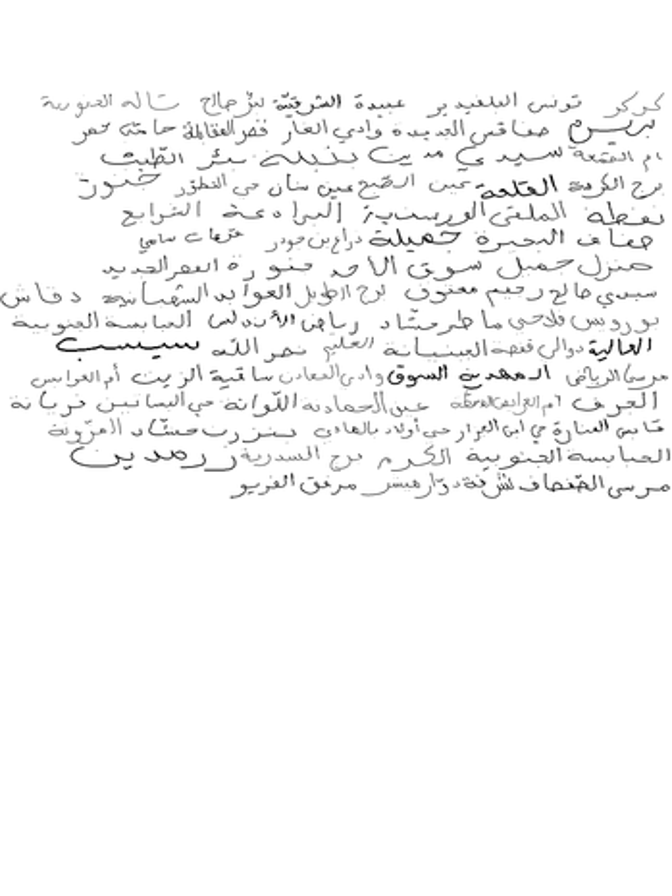 كركر تونس البلفيدير عبيدة الشرقيّة بئر صالح شاله الجنوبية
صفاقس الجديدة وادي الغار قصر العقايلة حامة
أم القمعة سيدي مدين بئر الطيب
برج الكرمة القلعة عين الصّبح عين سنان حي التطوّر خنور
نفطة الملتقى الورسنية البرادعة الشرايع
ضفاف البحيرة جميلة ذراع بن جودر
منزل جميل سوق الأحد منورة القصر الجديد
سيدي صالح رحيم معتوق برج الطويل العوابد الشهبانية دقاش
بورويس فلاحي ماطر حشاد رياض الأندلس العبابسة الجنوبية
العالية دوالي قفصة نصر الله سبيسب
مرسى الرياض المهدية السوق وادي المعادن ساقية الزيت أم العرايس
الجرف أم العرايس المحطة عين الحمادنة اللّوانة حي البساتين فريانة
قابس المنارة حي ابن الجزار حي أولاد بالهادي بنزرت حشاد المزّونة
العبابسة الجنوبية الكرم برج السدرية رمدين
مرسى الصّفصاف شرفة دوّار هيشر مرفق الفريو